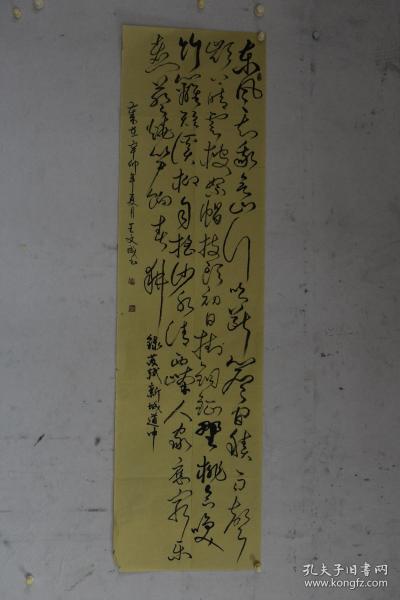 东风知我欲山行吹断檐间积雨声
岭上晴云披絮帽树头初日挂铜钲野桃含笑
竹篱短溪柳自摇沙水清西崦人家应最乐
煮葵烧笋饷春耕
錄苏轼新城道中
辛卯年夏月王文成书
孔夫子旧书网
www.kongfz.com